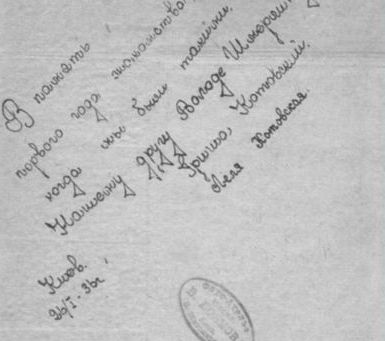 В память
первого года знакомства
когда мы были такими.
Нашему другу Володе
Гриша, Котовский.
Леля Котовская.
Киев.
26/I - 36г